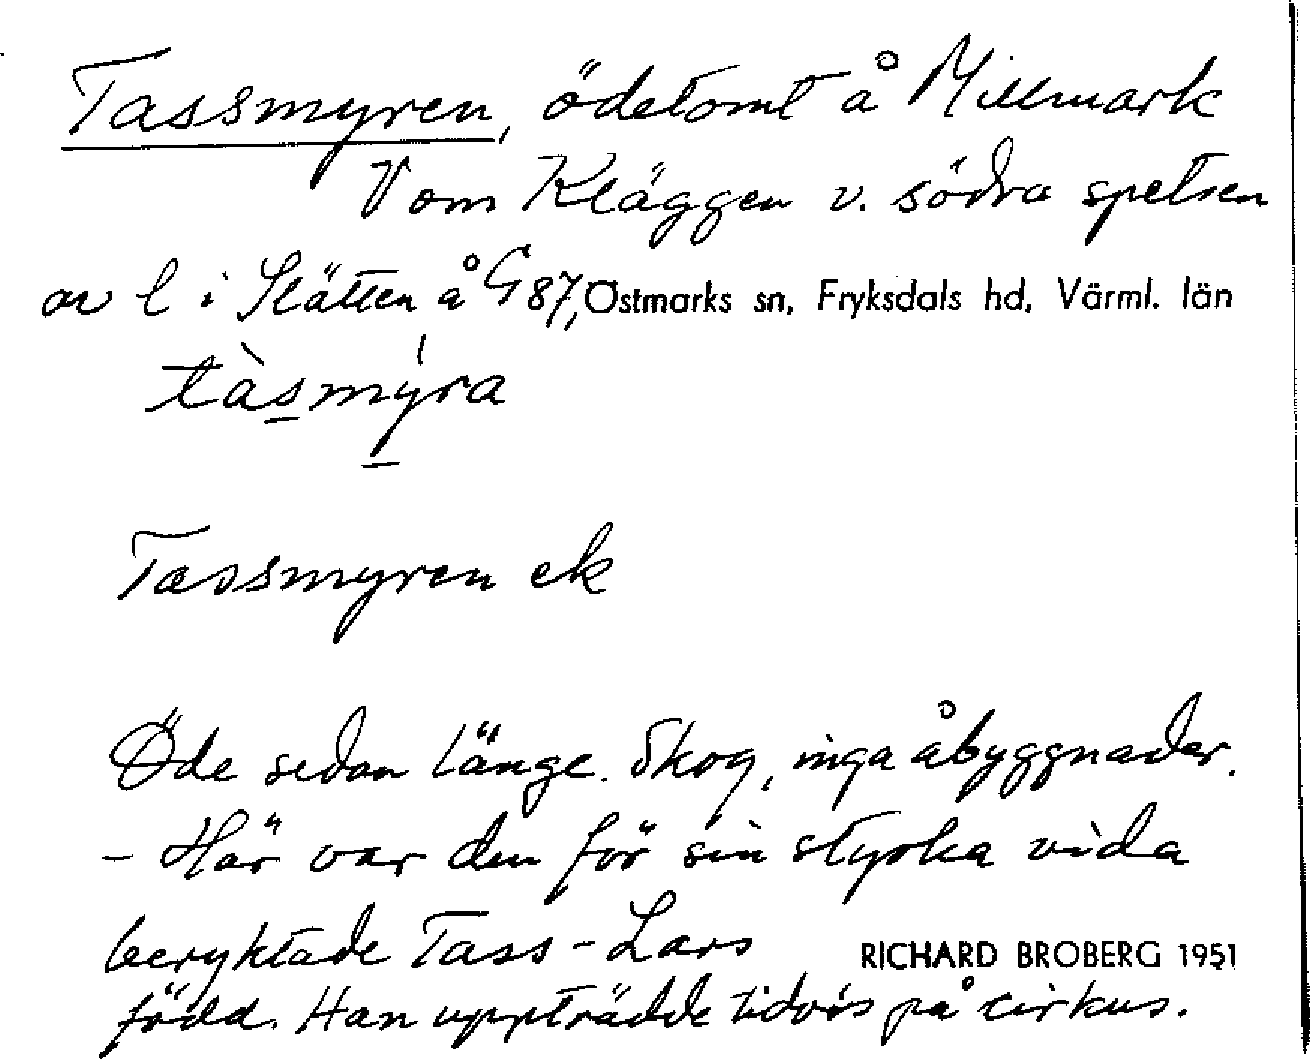 Tassmyren, ödetomt å Millmark
V om Kläggen v. södra spetsen
av l i Slätten å G 87, Östmarks sn, Fryksdals hd, Värml. län
tàsmýra
Tassmyren ek
Öde sedan länge. Skog, inga åbyggnader.
- Här var den för sin styrka vida
beryktade Tass-Lars
RICHARD BROBERG 1951
född. Han uppträdde tidvis på cirkus.